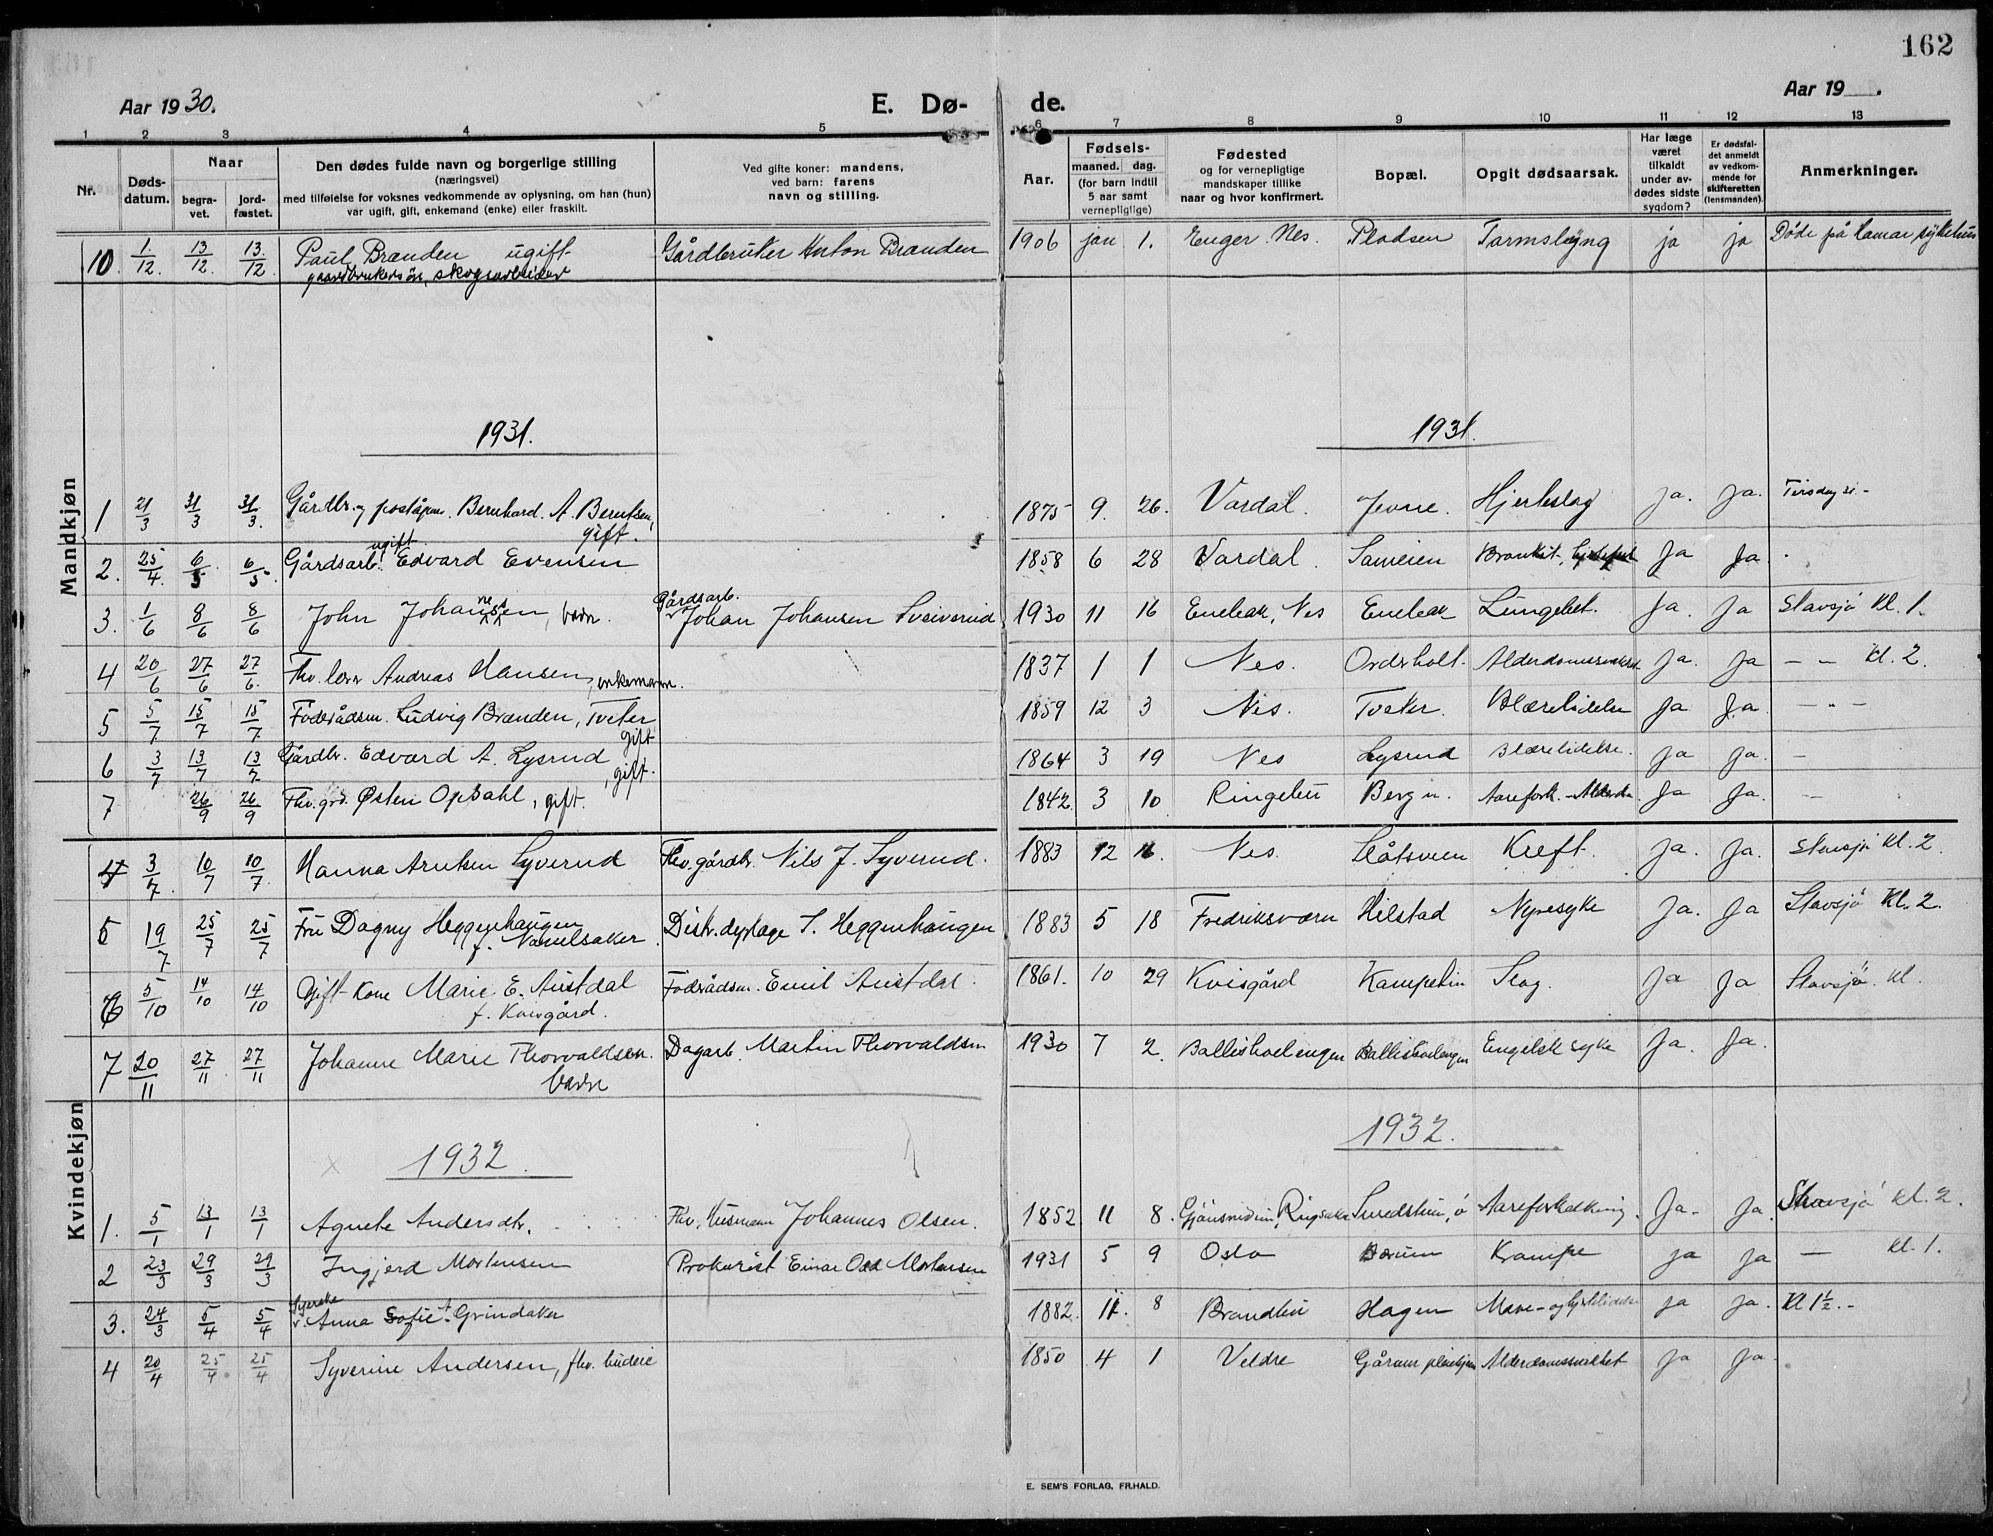 162
Aar 1930.
E. Dø-
de.
Aar 19 .
1 2 3 4 5 6 7 8 9 10 11 12 13
Nr.
Døds-
datum.
Naar
begra-
vet.
jord-
fæstet.
Den dødes fulde navn og borgerlige stilling
(næringsvei)
med tilføielse for voksnes vedkommende av oplysning, om han (hun)
var ugift, gift, enkemand (enke) eller fraskilt.
Ved gifte koner: mandens,
ved barn: farens
navn og stilling.
Aar.
Fødsels-
maaned. dag.
(for barn indtil
5 aar samt
vernepligtige)
Fødested
og for vernepligtige
mandskaper tillike
naar og hvor konfirmert.
Bopæl.
Opgit dødsaarsak.
Har læge
været
tilkaldt
under av-
dødes sidste
sygdom?
Er dødsfal-
det anmeldt
av vedkom-
mende for
skifteretten
(lensmanden).
Anmerkninger.
Mandkjøn
10. 1./12. 13/12. 13./12. Paul Brænden ugift Gårdbruker Anton Brænden 1906 jan 1. Enger. Nes. Pladsen Tarmslyng ja ja Døde på Hamar sykehus
gaardbrukersøn, skogsarbeider
1931. 1931.
1 21/3 31/3 31/3. Gårdbr. og poståpner Bernhard. A. Berntsen, 1875 9. 26. Vardal. Jevne. Hjerteslag Ja. Ja. Tirsdag
gift.
ugift.
2. 25/4. 6/5 6/5. Gårdsarb. Edvard Evensen 1858 6 28 Vardal. Sameien Ja Ja.
Gårdsarb.
3. 1/6 8/6 8/6 John Johannesen, barn. Johan Johansen Sveiverud 1930 11 16 Enebak, Nes Enebak Lungebet. Ja. Ja Stavsjø Kl. 1.
4 20/6 27/6 27/6. Fhv. lærer Andreas Hansen, enkemann. 1837 1 1 Nes. Ordsholt. Ja. Ja — — Kl. 2.
5 5/7 15/7 15/7. Foderådsm. Ludvig Brænden, Tveter 1859 12 3 Nes. Tveter. Blærelidelse Ja Ja. — " —
gift
6 3/7 13/7 13/7. Gårdbr. Edvard A. Lysrud, gift. 1864 3 19 Nes Lysrud Blærelidelse. Ja Ja. —
7 26/9 26/9 Fhv. grd. Østen Opdahl, gift. 1842. 3 10 Ringebu Berg n. Ja Ja. —
Kvindekjøn
4 3/7. 10/7 10/7. Hanna Arntsen Syverud Fhv. gårdbr. Nils J. Syverud. 1883 12 16. Nes. Slåtsveen Kreft. Ja. Ja. Stavsjø Kl. 2.
5 19/7 25/7 25/7 Fru Dagny Heggenhaugen Distr. dyrlæge S. Heggenhaugen 1883 5 18 Fredriksværn Hilstad Nyresyke Ja. Ja Stavsjø Kl. 2.
6 5/10 14/10 14/10 Gift Kone Marie E. Austdal Foderådsm. Emil Austdal. 1861. 10 29 Kvisgård Slag. Ja Ja Stavsjø. Kl.
f. Kvisgård.
7 20/11 27/11 27/11 Johanne Marie Thorvaldsen. Dagarb. Martin Thorvaldsen 1930 7 2. Ballishoelengen Ballishoelengen Engelsk syke Ja. Ja.
barn
1932. 1932.
1. 5/1 13/1 13/1 Agnete Andersdtr. Fhv. husmann Johannes Olsen. 1852 11 8. Ringsaker Aareforkalkning. Ja. Ja. Stavsjø Kl. 2.
2 23/3 29/3 29/3 Ingjerd Mortensen Prokurist Einar Odd Mortensen 1931 5 9 Oslo Bærum Krampe ja Ja — Kl. 1.
Syerske
3. 24/3 5/4 5/4 Anna Sofie Grindaker 1882. 11. 8 Brandbu Hagen Mave- og hjertelidelse ja Ja. Kl 1½.-
4 20/4 25/4. 25/4 Syverine Andersen, fhv. budeie 1850 4 1 Veldre Gårum pleiehjem Alderdomssvakhet Ja Ja.
E. SEM'S FORLAG, FR.HALD.